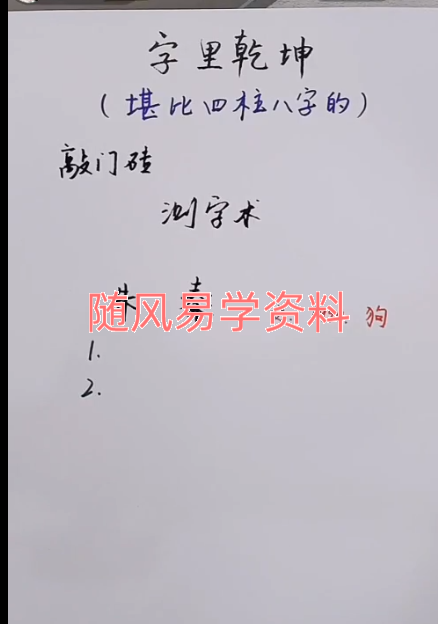 字里乾坤
(堪比四柱八字的)
敲门砖
测字术
随风易学资料
狗
1.
2.